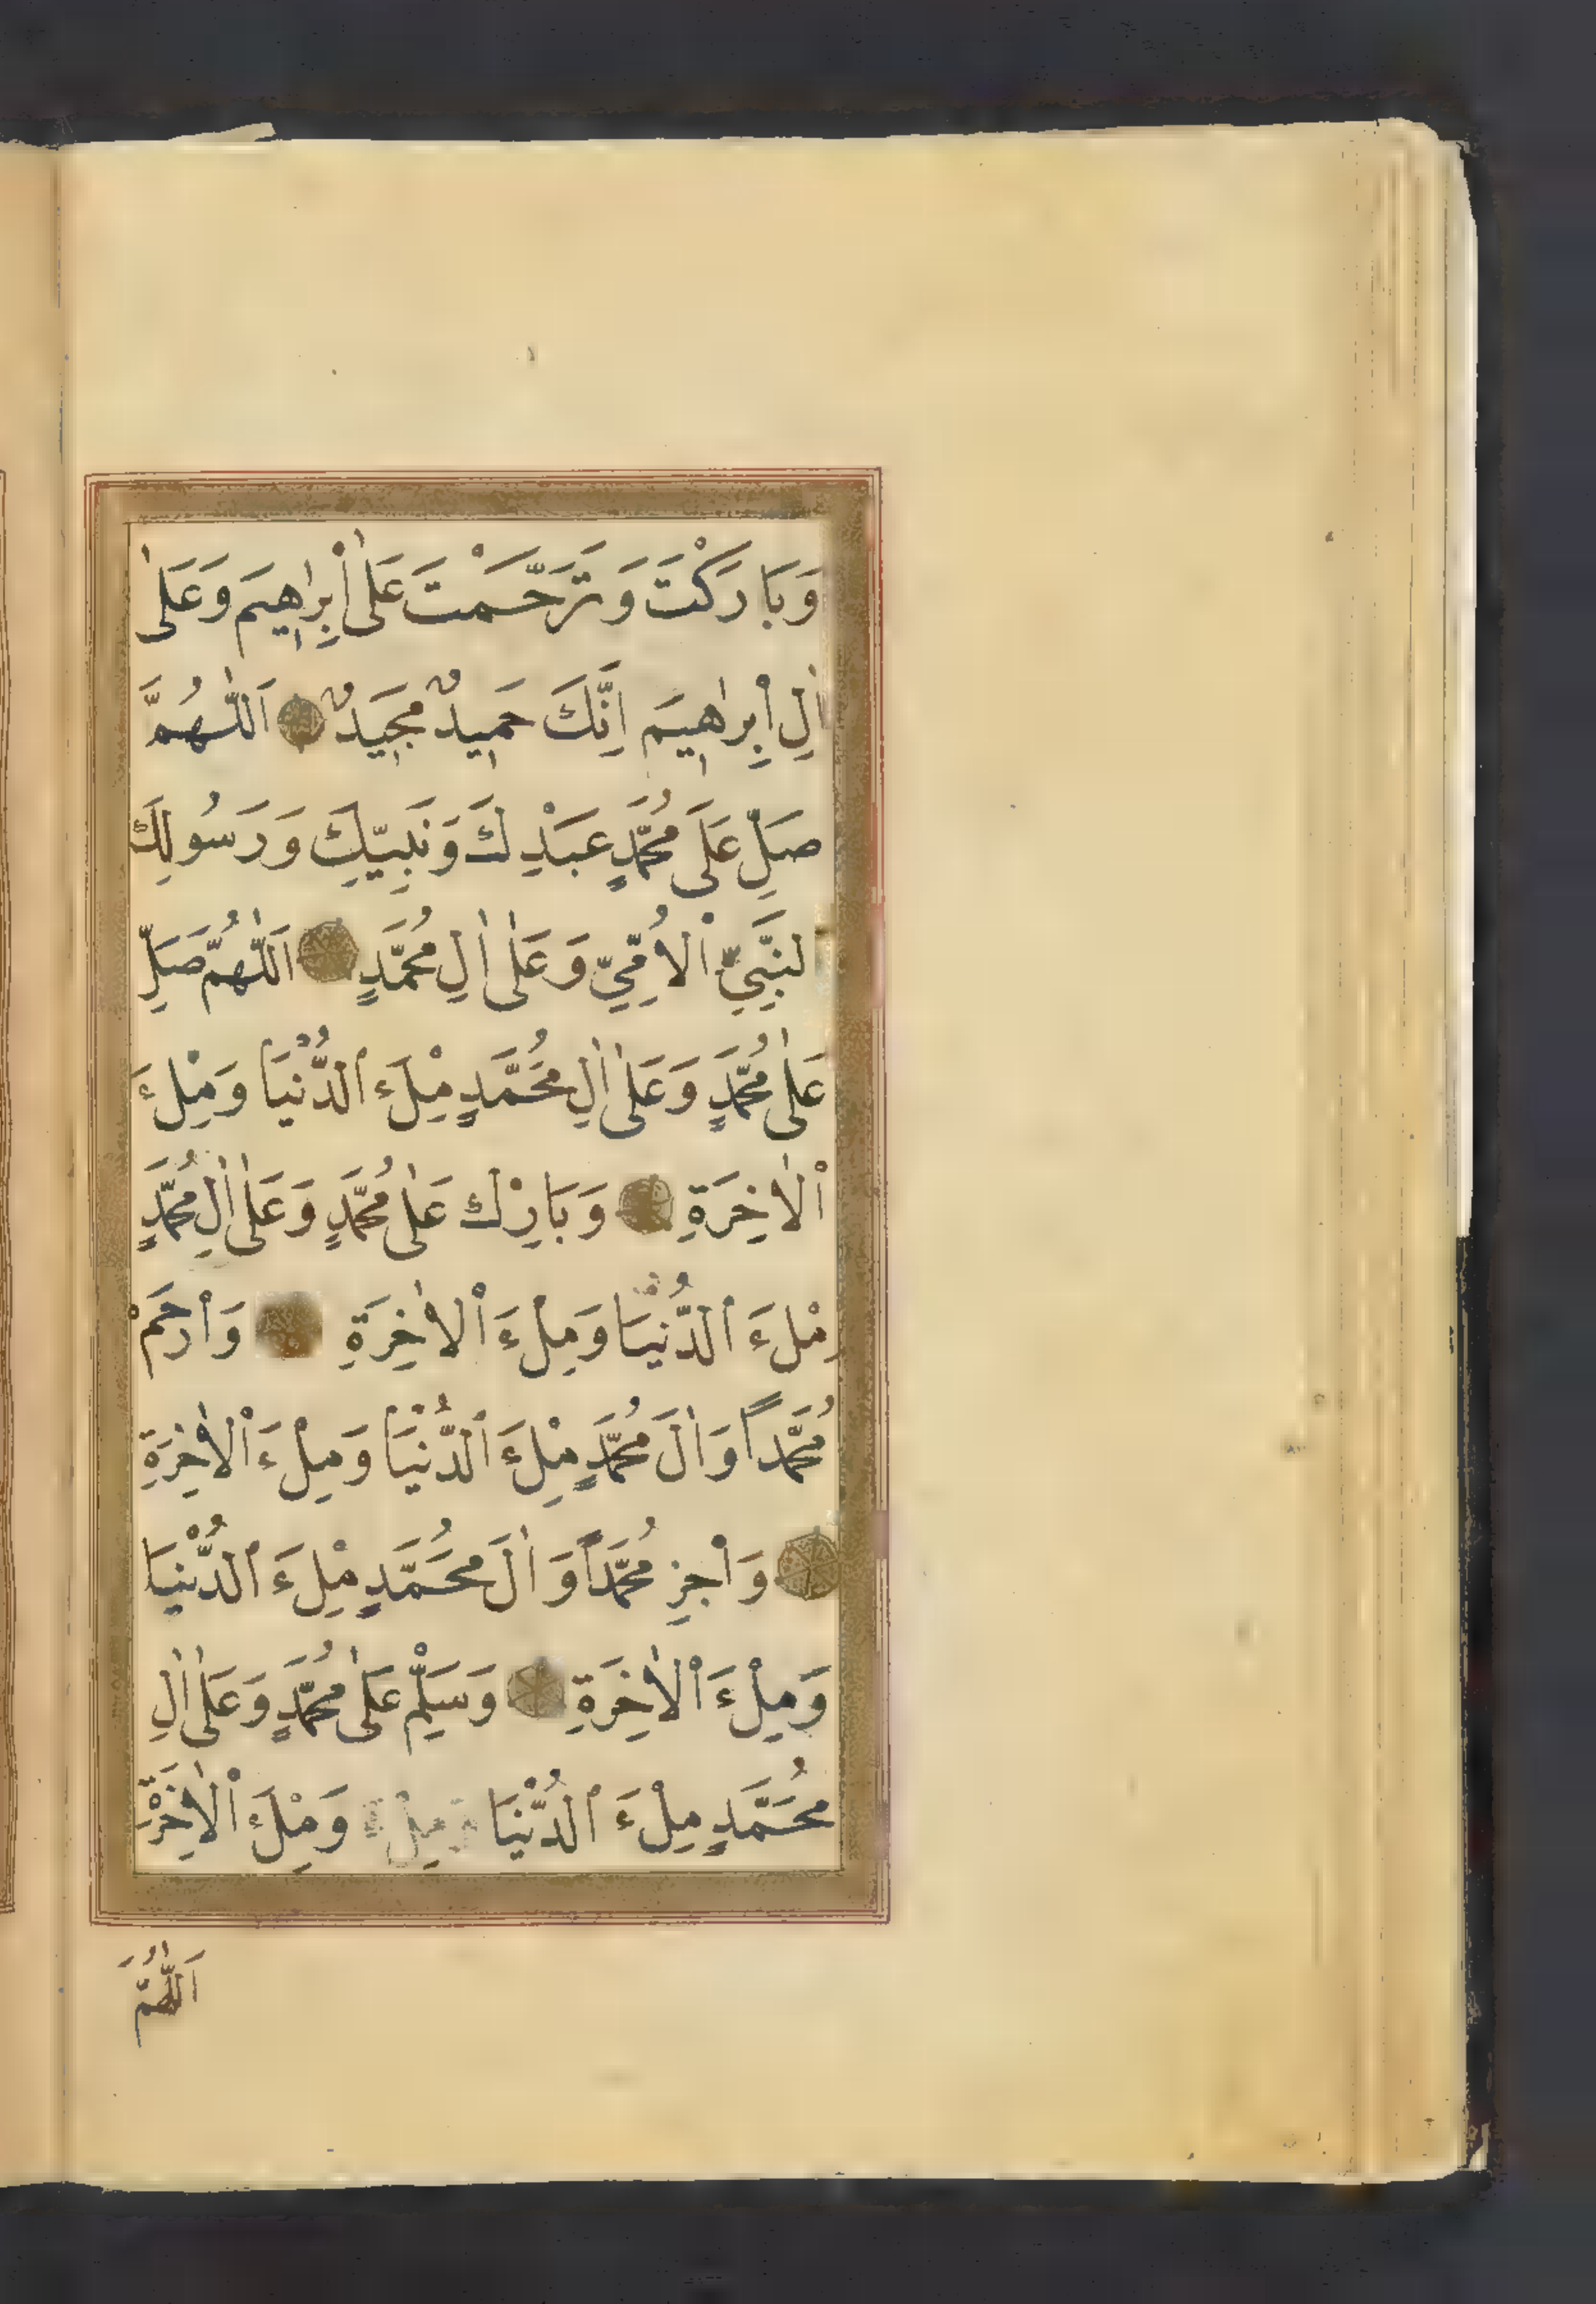 وَبَارَكْتَ وَتَرَحَّمْتَ عَلٰى اِبْرٰاهِيمَ وَعَلٰى
اٰلِ اِبْرٰاهِيمَ اِنَّكَ حَمِيدٌ مَجِيدٌ اَللّٰهُمَّ
صَلِّ عَلَى مُحَمَّدٍ عَبْدِكَ وَنَبِيِّكَ وَرَسُولِكَ
النَّبِيِّ الْاُمِّيِّ وَعَلٰى اٰلِ مُحَمَّدٍ اَللّٰهُمَّ صَلِّ
عَلٰى مُحَمَّدٍ وَعَلٰى اٰلِ مُحَمَّدٍ مِلْءَ الدُّنْيَا وَمِلْءَ
الْاٰخِرَةِ وَبَارِكْ عَلٰى مُحَمَّدٍ وَعَلٰى اٰلِ مُحَمَّدٍ
مِلْءَ الدُّنْيَا وَمِلْءَ الْاٰخِرَةِ وَارْحَمْ
مُحَمَّداً وَاٰلَ مُحَمَّدٍ مِلْءَ الدُّنْيَا وَمِلْءَ الْاٰخِرَةِ
وَاجْزِ مُحَمَّداً وَاٰلَ مُحَمَّدٍ مِلْءَ الدُّنْيَا
وَمِلْءَ الْاٰخِرَةِ وَسَلِّمْ عَلٰى مُحَمَّدٍ وَعَلٰى اٰلِ
مُحَمَّدٍ مِلْءَ الدُّنْيَا وَمِلْءَ الْاٰخِرَةِ
اَللّٰهُمَّ